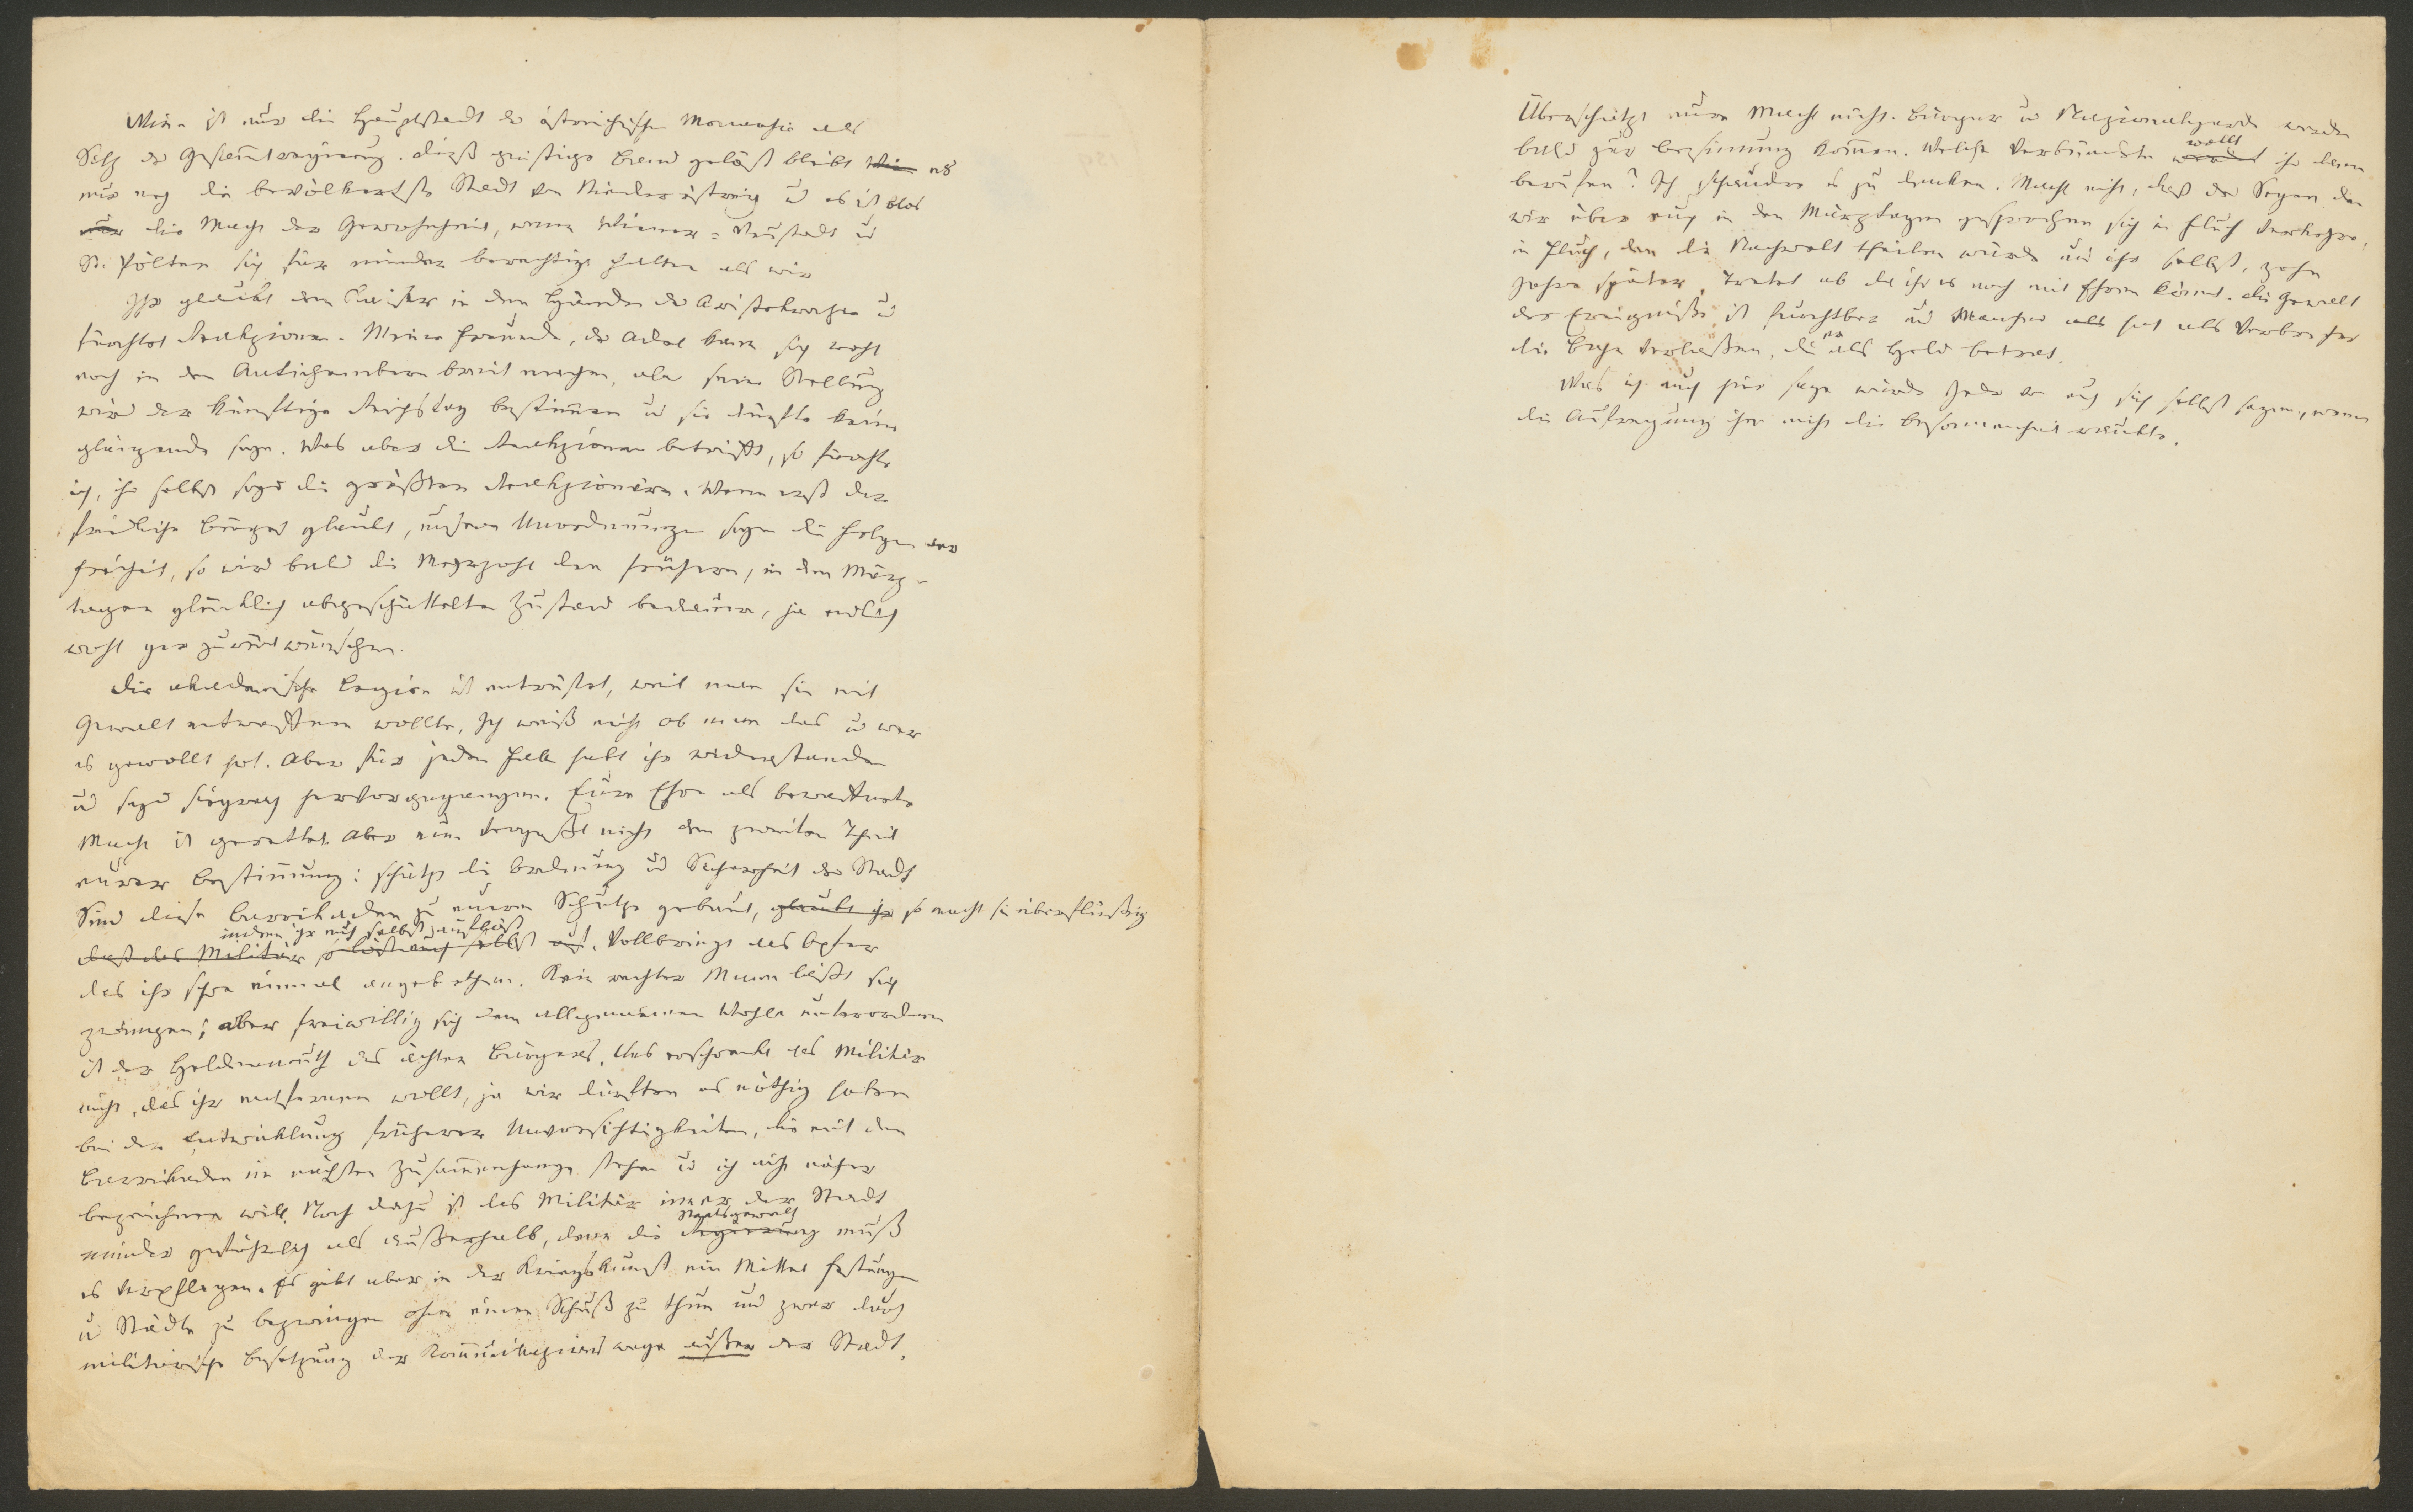 Wien ist nur die Hauptstadt der östreichischen Monarchie als
Sitz der Gesam̄tregierung. Dieß geistige Band gelöst bleibt Wien es
nur noch die bevölkertste Stadt von Niederöstreich u es ist blos
nur die Macht der Gewohnheit, wenn Wiener-Neustadt u
St. Pölten sich für minder berechtigt halten als wir
Ihr glaubt den Kaiser in den Händen der Aristokrazie u
fürchtet Reakzionen. Meine Freunde, der Adel kann sich wohl
noch in den Antichambern breit machen, aber seine Stellung
wird der künftige Reichstag bestim̄en u sie dürfte keine
glänzende seyn. Was aber die Reakzionen betrifft, so fürchte
ich, ihr selbst seyd die größten Reakzionäre. Wenn erst der
friedliche Bürger glaubt, unsere Unordnungen seyen die Folgen der
Freiheit, so wird bald die Mehrzahl den frühern, in den März-
tagen glücklich abgeschüttelten Zustand bedauern, ja endlich
wohl gar zurückwünschen.
Die akademische Legion ist entrüstet, weil man sie mit
Gewalt entwaffnen wollte. Ich weiß nicht ob man das u wer
es gewollt hat. Aber für jeden Fall habt ihr widerstanden
u seyd siegreich hervorgegangen. Eure Ehre als bewaffnete
Macht ist gerettet. Aber nun vergeßt nicht den zweiten Theil
eurer Bestim̄ung: schützt die Ordnung und Sicherheit der Stadt
Sind diese Barrikaden zu eurem Schutze gebaut, glaubt ihr so macht sie überflüssig
indem ihr euch selbst auflöst
daß das Militär so löst euch selbst auf. Vollbringt das Opfer
das ihr schon einmal angebothen. Kein rechter Mann läßt sich
zwingen; aber freiwillig sich dem allgemeinen Wohle unterordnen
ist der Heldenmuth des ächten Bürgers. Uns erschreckt das Militär
nicht, das ihr entfernen wollt, ja wir dürften es nöthig haben
bei der Entwicklung früherer Unvorsichtigkeiten, die mit den
Barrikaden im nächsten Zusam̄enhange stehen u ich nicht näher
bezeichnen will. Noch dazu ist das Militär inner der Stadt
Staatsgewalt
minder gefährlich als außerhalb, denn die Regierung muß
es verpflegen. Es gibt aber in der Kriegskunst ein Mittel Festungen
u Städte zu bezwingen ohne einen Schuß zu thun und zwar durch
militärische Besetzung der Kom̄unikazionswege außer der Stadt.
Überschätzt eure Macht nicht. Bürger u Nazionalgarde werden
wollt
bald zur Besinnung kom̄en. Welche Verbündete werdet ihr dann
berufen? Ich schaudre es zu denken. Macht nicht, daß der Segen den
wir über euch in den Märztagen gesprochen sich in Fluch verkehre,
in Fluch, den die Nachwelt theilen würde und ihr selbst, zehn
Jahre später. Tretet ab da ihr es noch mit Ehren könnt. Die Gewalt
der Ereignisse ist furchtbar und Mancher als hat als Verbrecher
er
die Bahn verlassen, die als Held betrat.
Was ich euch hier sage würde Jeder von euch sich selbst sagen, wenn
die Aufregung ihm nicht die Besonnenheit raubte.